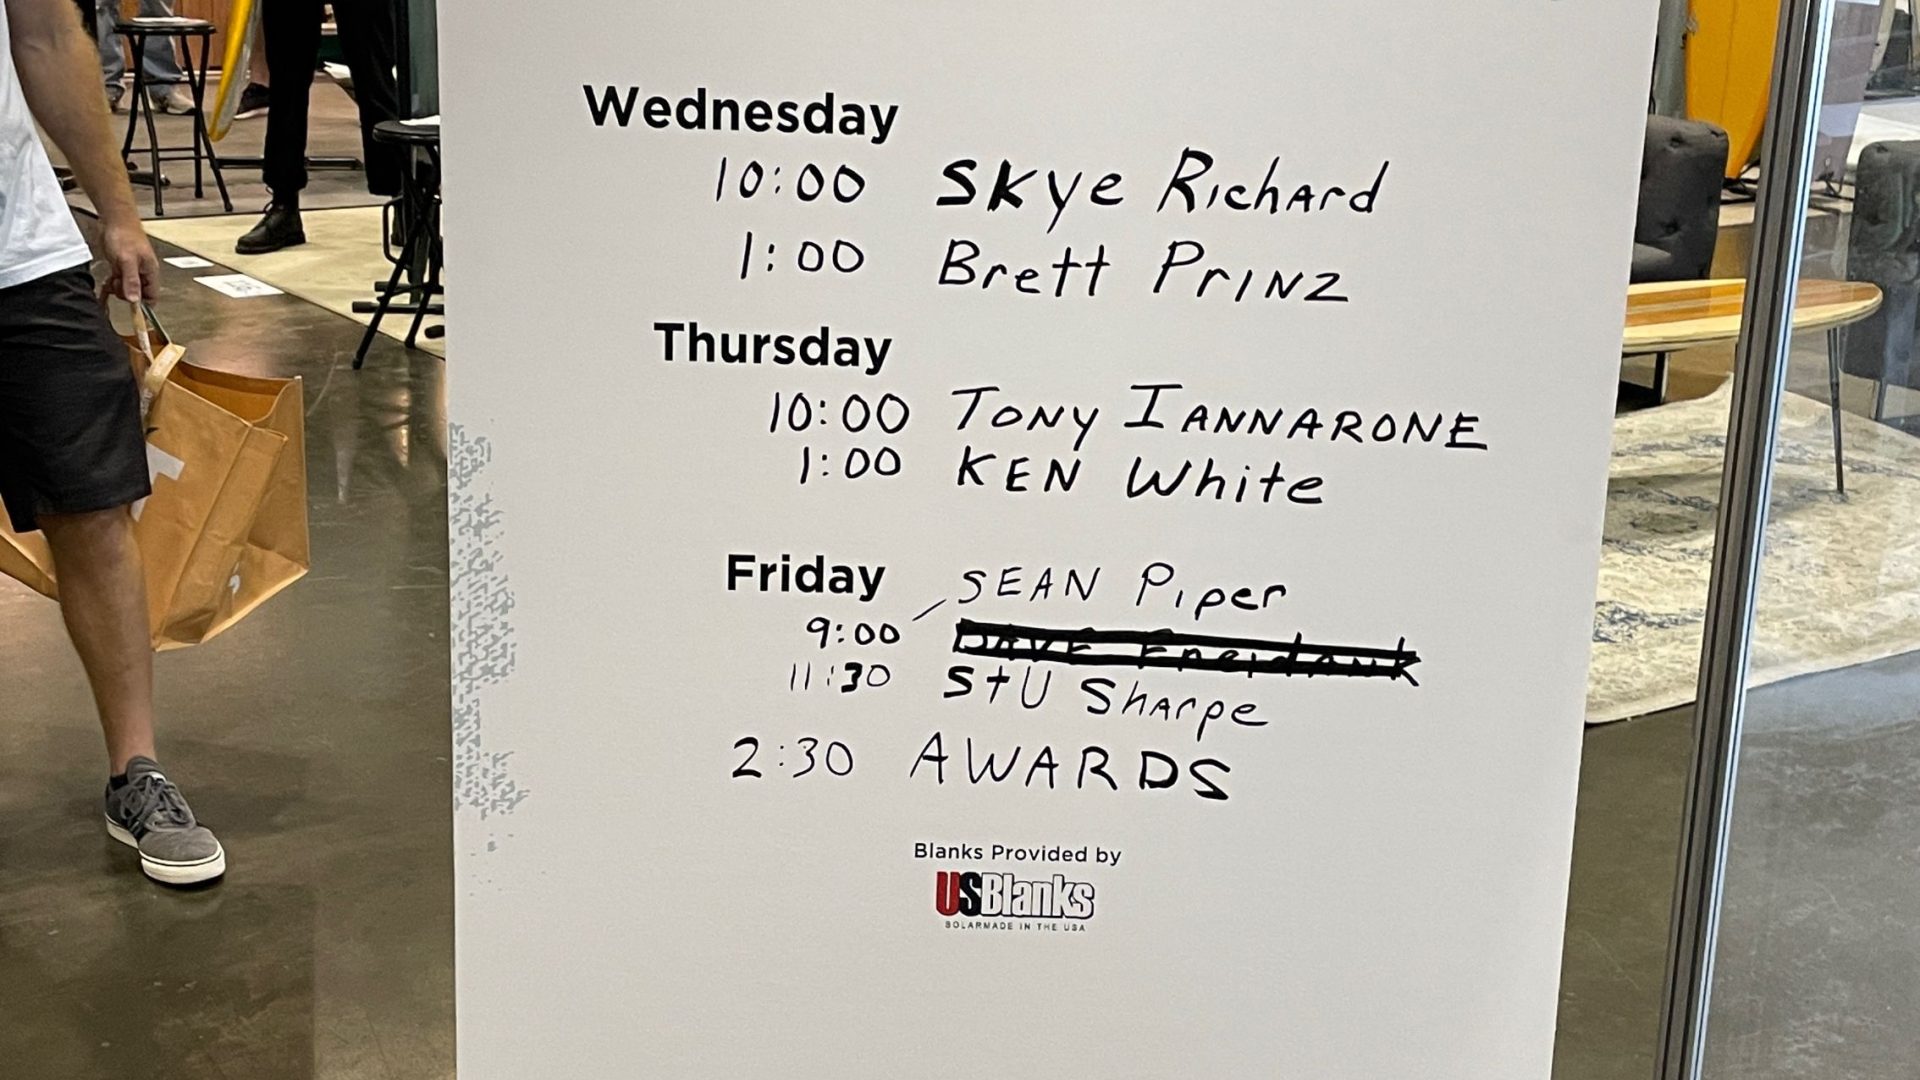 Wednesday
10:00 Skye Richard
1:00 Brett Prinz
Thursday
10:00 Tony Iannarone
1:00 Ken White
Friday
SEAN Piper
9:00
11:30 Stu Sharpe
2:30 AWARDS
Blanks Provided by
USBlanks
SOLARMADE IN THE USA